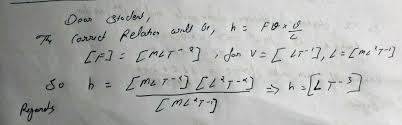 Dear Student,
The Correct Relation will be, h = Fv × v/L
[F] = [MLT⁻²], for V = [LT⁻¹], L = [ML²T⁻¹]
So h = [MLT⁻²] [L²T⁻²] / [ML²T⁻¹] ⇒ h = [LT⁻³]
Regards